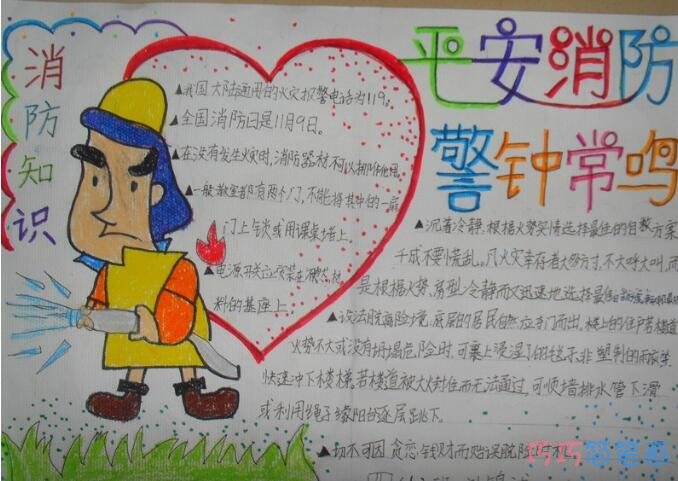 平安消防
警钟常鸣
消防知识
▲我国大陆通用的火灾报警电话为119。
▲全国消防日是11月9日。
▲在没有发生火灾时,消防器材不可以挪作他用
▲一般教室都有两个门,不能将其中的一扇
门上锁或用课桌堵上。
▲电源开关应安装在
料的基座上
▲沉着冷静,根据火势实情选择最佳的自救方案
千成不要慌乱。凡火灾幸存者大多方寸,不大呼大叫,而
是根据火势、房型冷静而又迅速地选择最佳
▲设法脱离险境,底层的居民自然应夺门而出,楼上的住户若楼道
火势不大或没有坍塌危险时,可裹上浸湿了的毯子、非塑制的雨衣等
快速冲下楼梯,若楼道被大火封住而无法通过,可顺墙排水管下滑
或利用绳子缘阳台逐层跳下。
▲切不可因贪恋钱财而贻误脱险时机
巧巧简笔画